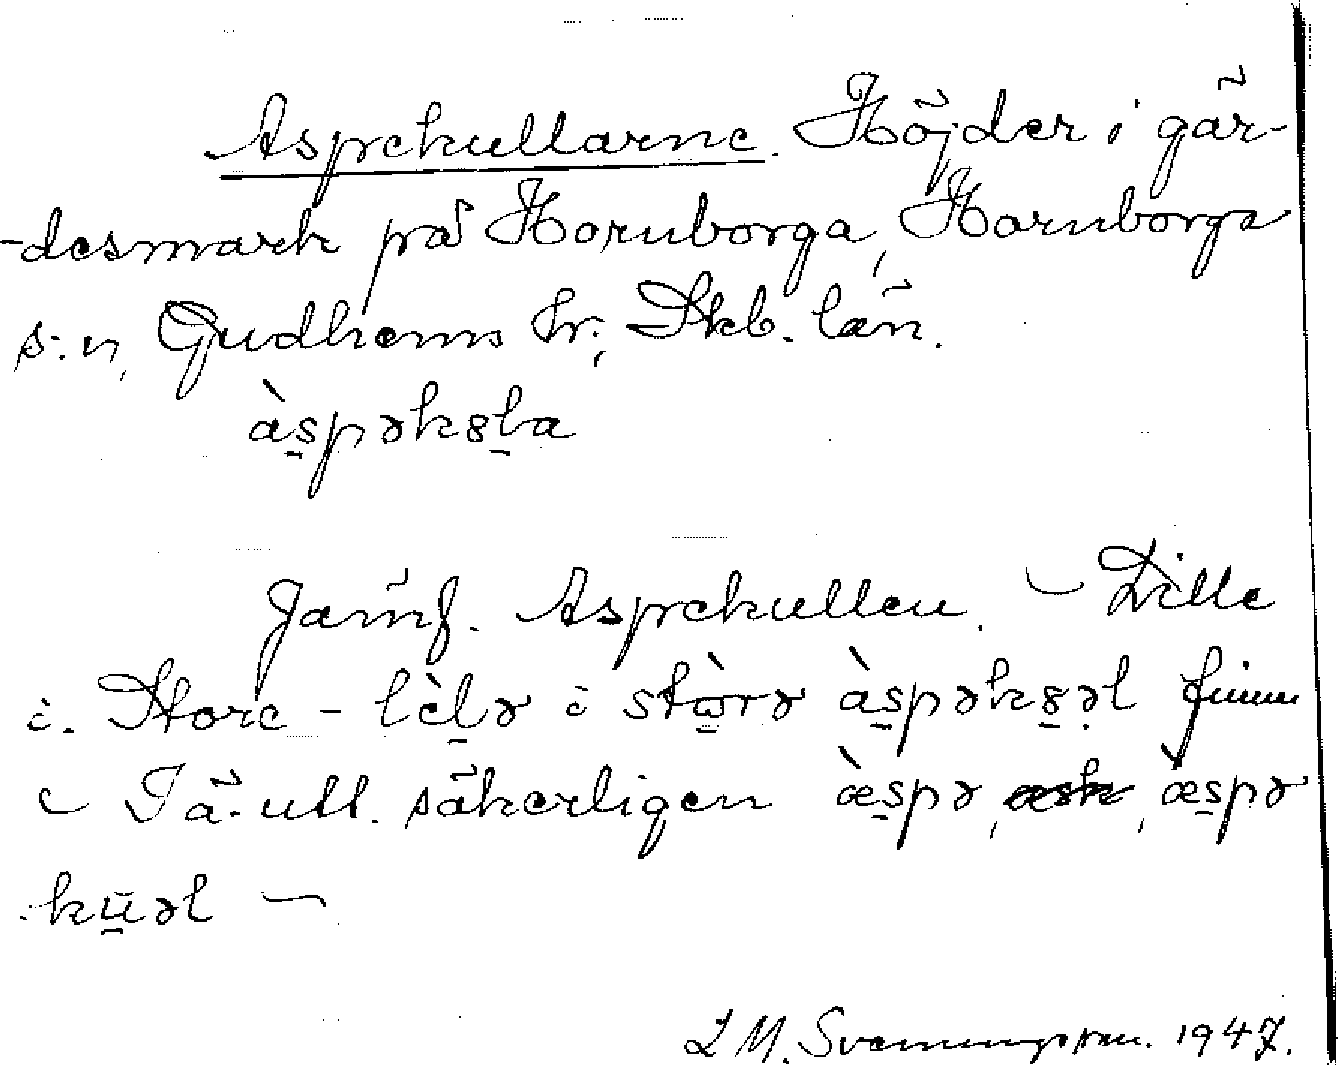 Aspekullarne. Höjder i gär-
-desmark på Hornborga, Hornborga
s:n, Gudhems hr; Skb. län.
às̱pəkȣḻa
Jämf. Aspekullen. – Lille
i. Store – lèḻə i stòrə às̱pəkȣ̱əl finns
– Tä. utt. säkerligen æ̀s̱pə, æ̀s̱pə
kṵəl –
L M. Svenningsson. 1947.